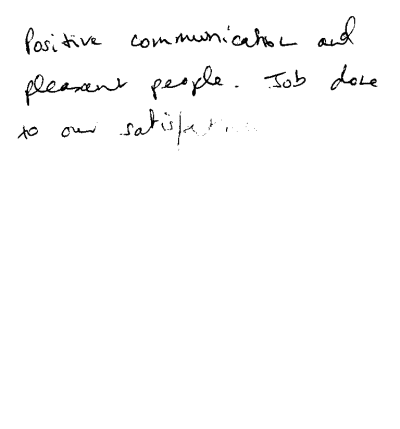 Positive communication and
pleasant people. Job done
to our satisfaction